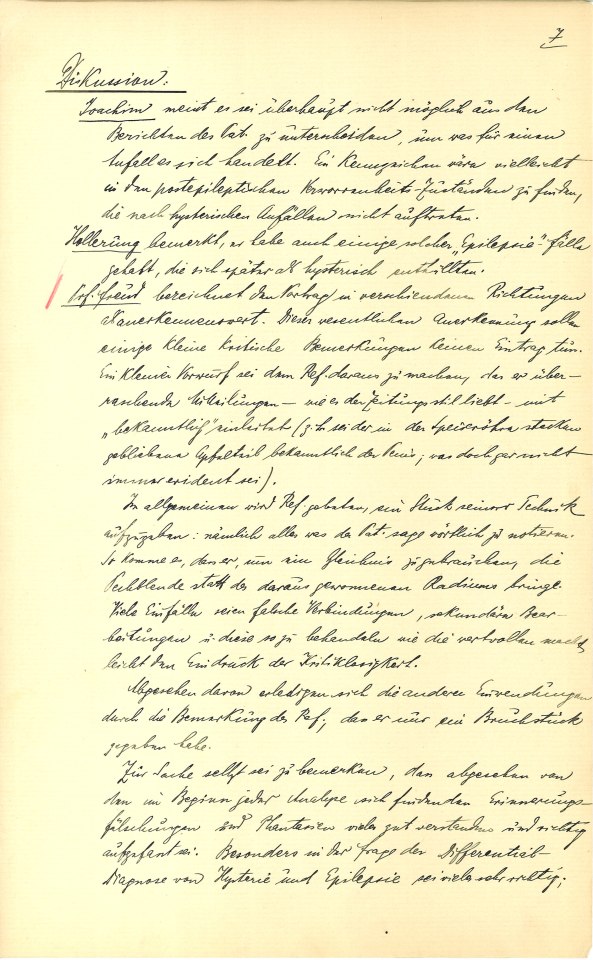 7
Diskussion:
Joachim meint es sei überhaupt nicht möglich aus den
Berichten des Pat. zu unterscheiden, um was für einen
Anfall es sich handelt. Ein Kennzeichen wäre vielleicht
in den postepileptischen Verworrenheits-Zuständen zu finden,
die nach hysterischen Anfällen nicht auftreten.
Hollerung bemerkt, er habe auch einige solcher „Epilepsie"-fälle
gehabt, die sich später als hysterisch enthüllten.
Prof. Freud bezeichnet den Vortrag in verschiedenen Richtungen
als anerkennenswert. Dieser wesentlichen Anerkennung sollen
einige kleine kritische Bemerkungen keinen Eintrag tun.
Ein kleiner Vorwurf sei dem Ref. daraus zu machen, das er über-
raschende Mitteilungen – wie es der Zeitungsstil liebt – mit
„bekanntlich" einleitet (z.b. sei der in der Speiseröhre stecken
gebliebene Apfelteil bekanntlich der Penis; was doch gar nicht
immer evident sei).
Im allgemeinen wird Ref. gebeten, ein Stück seiner Technik
aufzugeben: nämlich alles was der Pat. sage wörtlich zu notieren.
So komme es, das er, um ein Gleichnis zu gebrauchen, die
Pechblende statt des daraus gewonnenen Radiums bringe.
Viele Einfälle seien falsche Verbindungen, sekundäre Bear-
beitungen u. diese so zu behandeln wie die wertvollen macht
leicht den Eindruck der Kritiklosigkeit.
Abgesehen davon erledigen sich die anderen Einwendungen
durch die Bemerkung des Ref., das er nur ein Bruchstück
gegeben habe.
Zur Sache selbst sei zu bemerken, das abgesehen von
den im Beginn jeder Analyse sich findenden Erinnerungs-
fälschungen und Phantasien vieles gut verstanden und richtig
aufgefasst sei. Besonders in der Frage der Differential-
Diagnose von Hysterie und Epilepsie sei vieles sehr richtig;